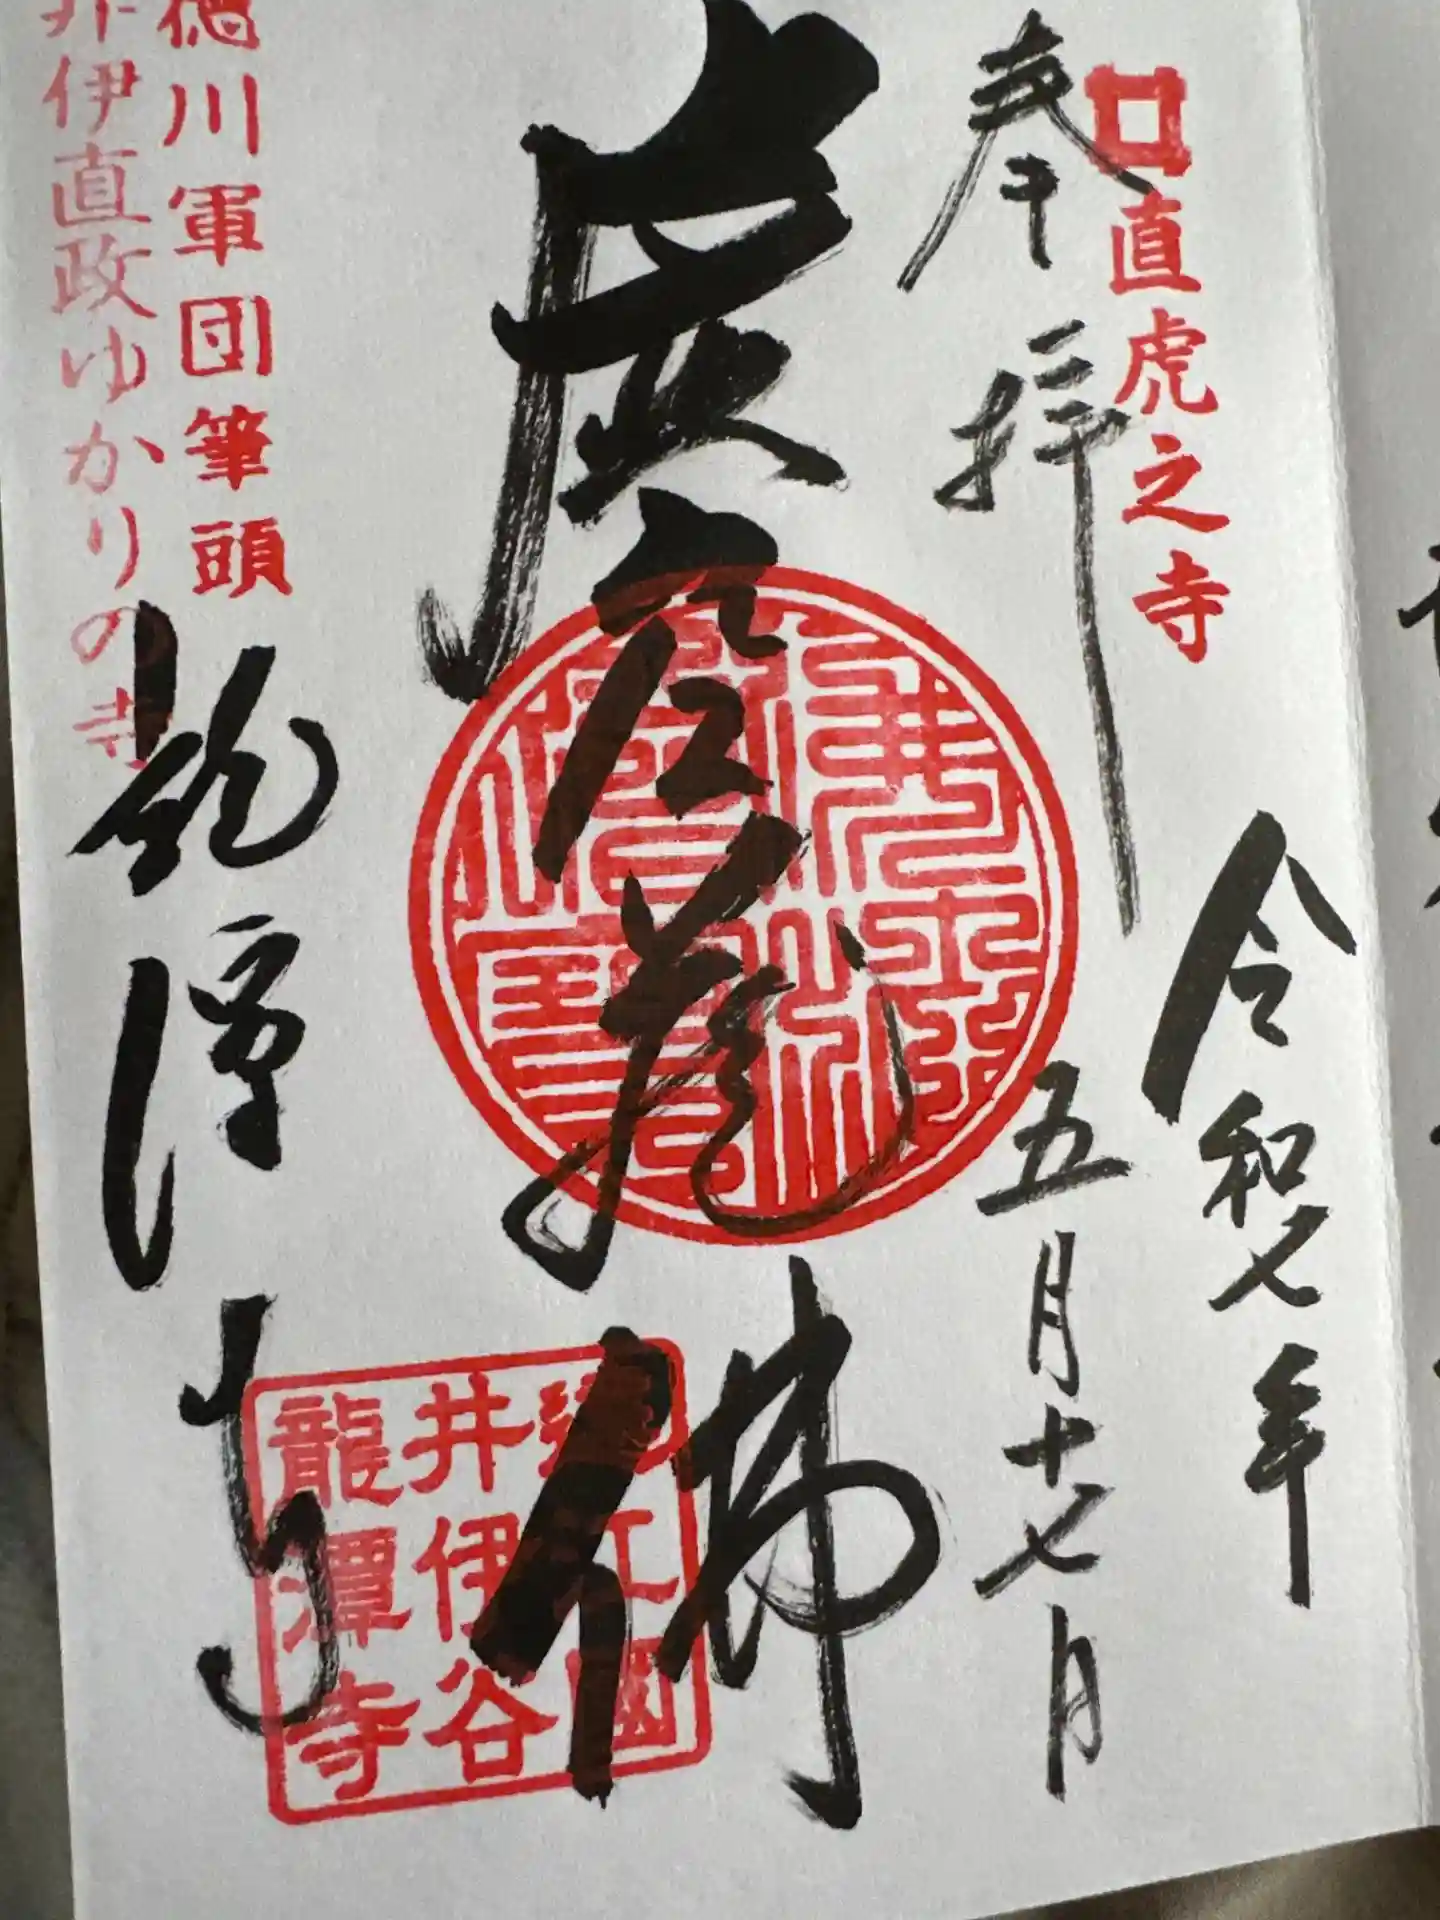 直虎之寺
奉拝
令和七年
五月十七日
虚空蔵佛
遠江國
井伊谷
龍潭寺
徳川軍団筆頭
井伊直政ゆかりの寺
龍潭寺